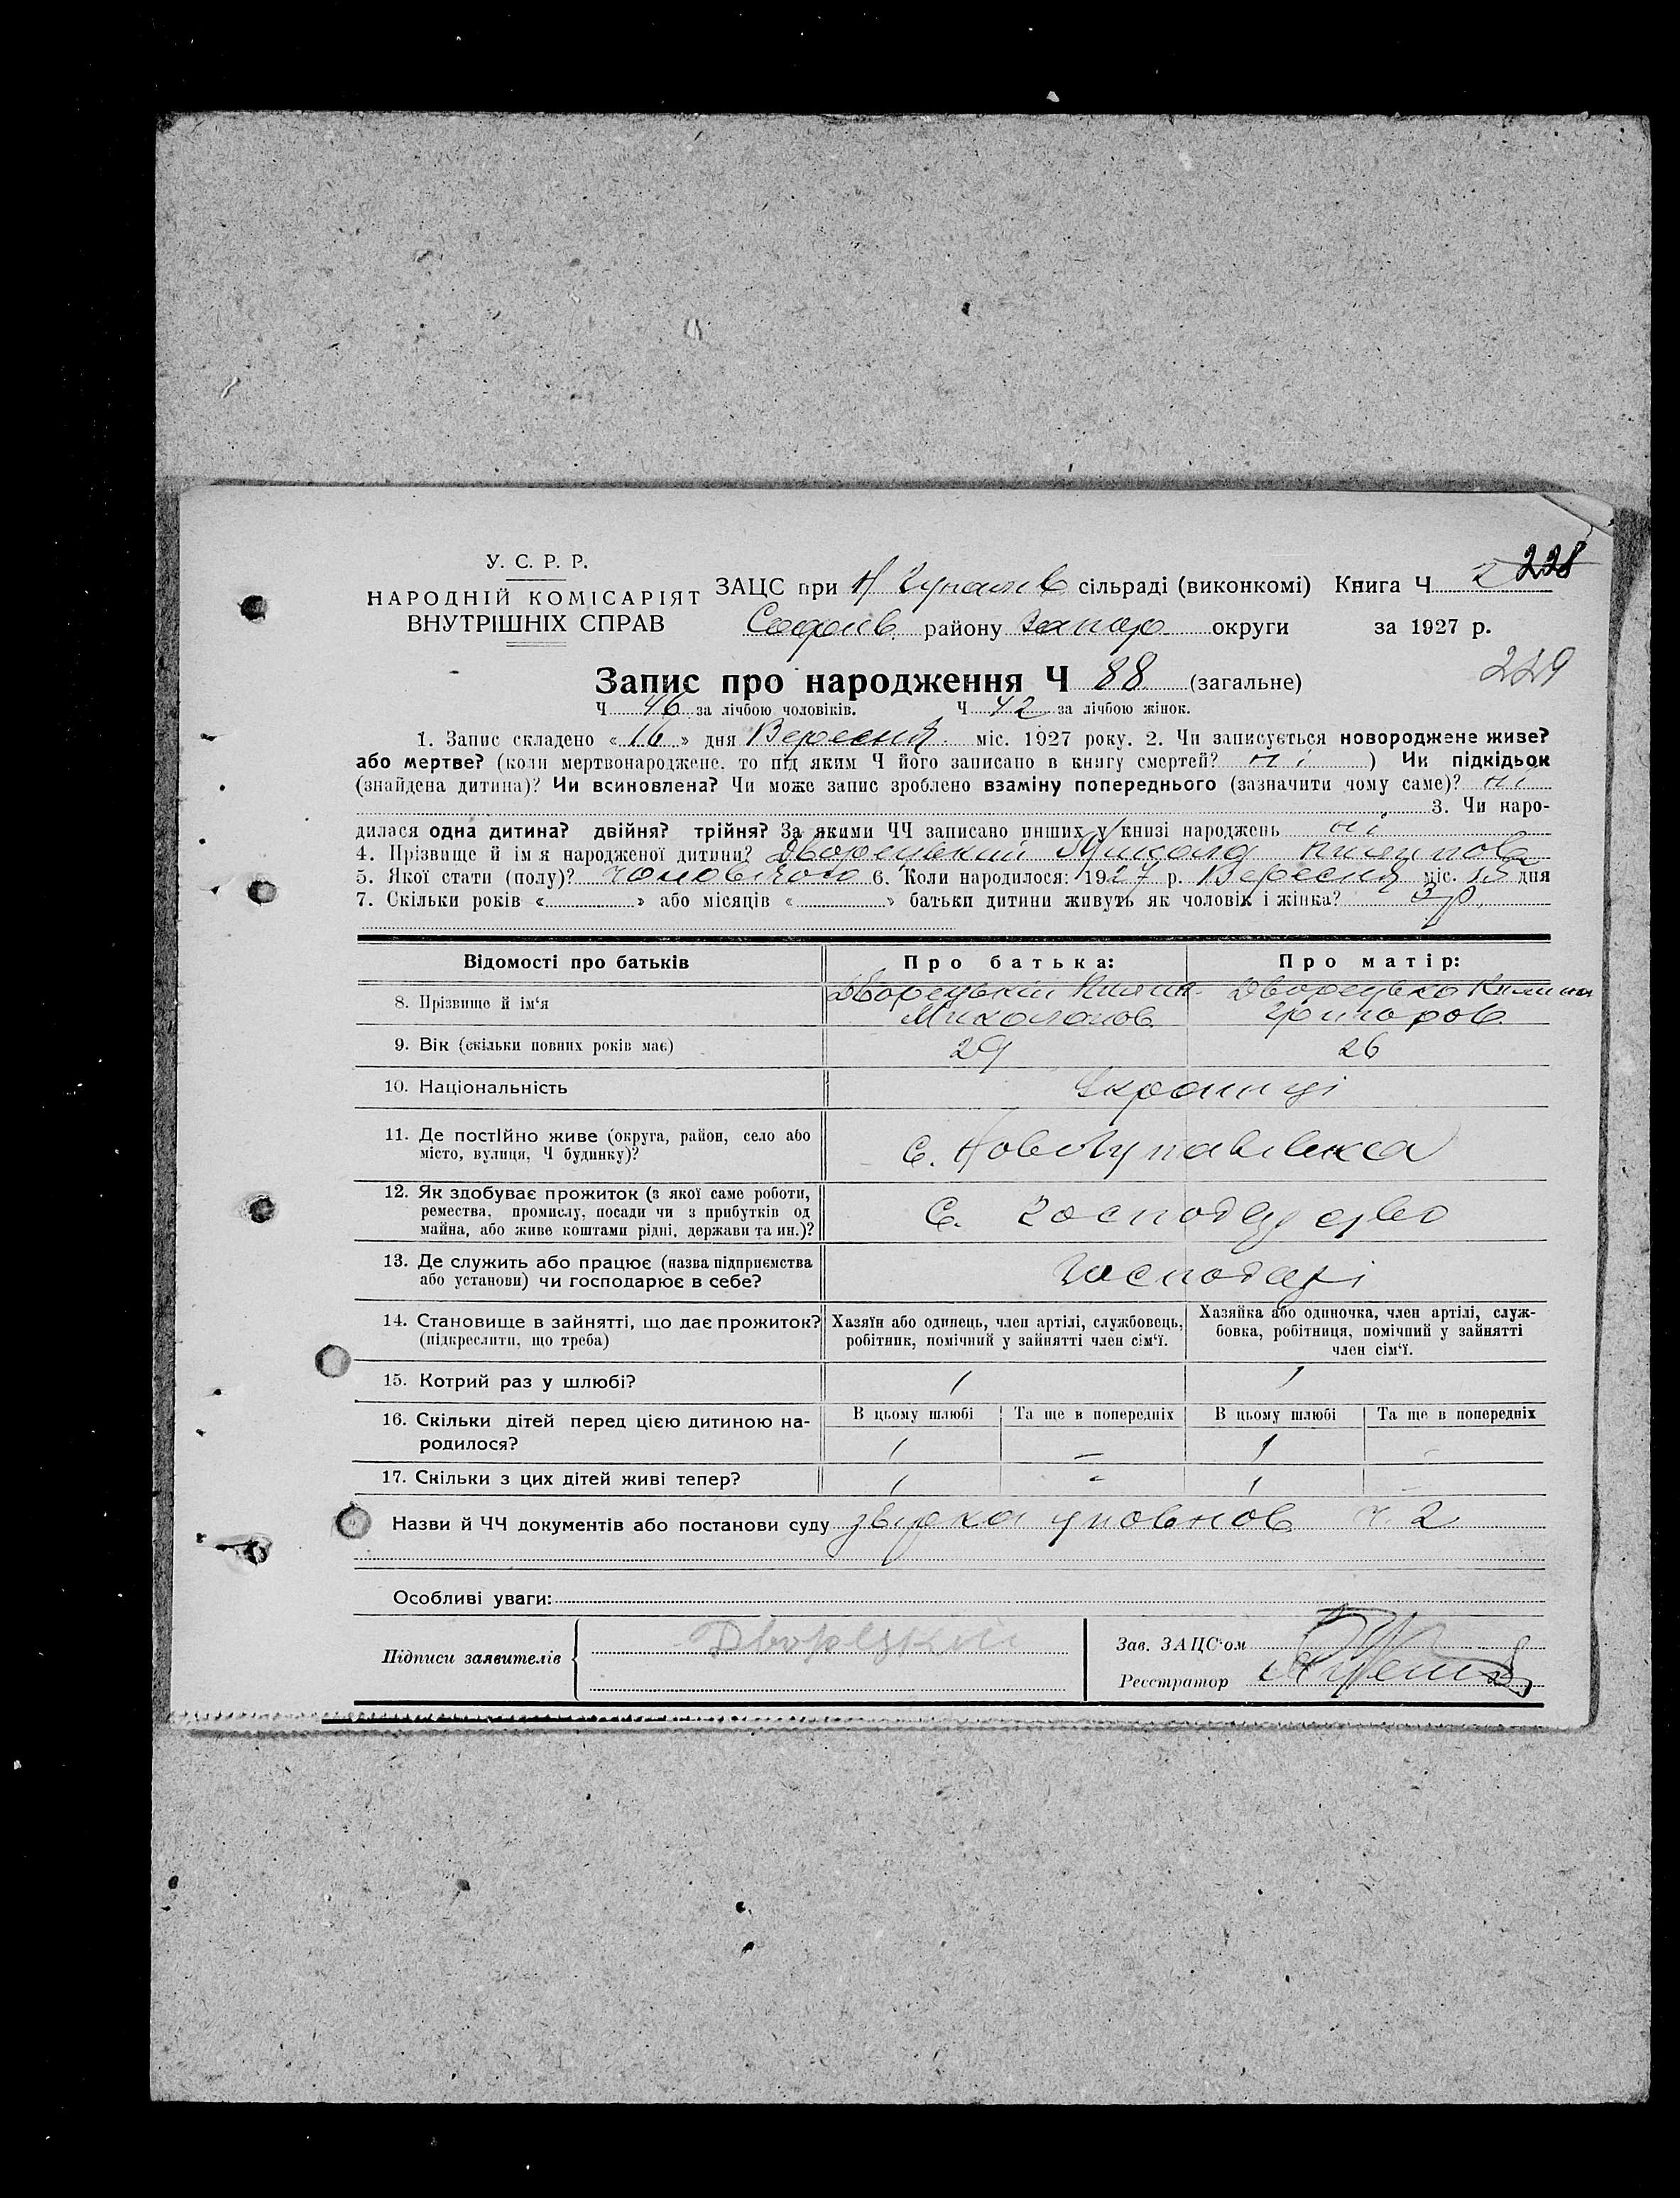 228
У. С. Р. Р.
НАРОДНІЙ КОМІСАРІЯТ
ВНУТРІШНІХ СПРАВ
ЗАЦС при Н Гупалив сільраді (виконкомі) Книга Ч 2
Софіив. району Запор. округи за 1927 р.
229
Запис про народження Ч 88 (загальне)
Ч 46 за лічбою чоловіків. Ч 42 за лічбою жінок.
1. Запис складено « 16 » дня Вересня міс. 1927 року. 2. Чи записується новороджене живе?
або мертве? (коли мертвонароджене, то під яким Ч його записано в книгу смертей? ні ) Чи підкідьок
(знайдена дитина)? Чи всиновлена? Чи може запис зроблено взаміну попереднього (зазначити чому саме)? ні
3. Чи наро-
дилася одна дитина? двійня? трійня? За якими ЧЧ записано инших у книзі народжень ні
4. Прізвище й ім'я народженої дитини? Дворецький Микола Пилипов
5. Якої стати (полу)? чоловічого 6. Коли народилося: 1927 р. Вересня міс. 15 дня
7. Скільки років « » або місяців « » батьки дитини живуть як чоловік і жінка? 3 р.
Відомості про батьків Про батька: Про матір:
8. Прізвище й ім'я Дворецькій Пилип Миколаиов. Дворецька Килина Григоров.
9. Вік (скільки повних років має) 29 26
10. Національність Украинці
11. Де постійно живе (округа, район, село або
місто, вулиця, Ч будинку)? С. Ново Гупаливка
12. Як здобуває прожиток (з якої саме роботи,
ремества, промислу, посади чи з прибутків од
майна, або живе коштами рідні, держави та ин.)? С. Господарство
13. Де служить або працює (назва підприємства
або установи) чи господарює в себе? Господарі
14. Становище в зайнятті, що дає прожиток?
(підкреслити, що треба)
Хазяїн або одинець, член артілі, службовець,
робітник, помічний у зайнятті член сім'ї.
Хазяйка або одиночка, член артілі, служ-
бовка, робітниця, помічний у зайнятті
член сім'ї.
15. Котрий раз у шлюбі? 1 1
16. Скільки дітей перед цією дитиною на-
родилося?
В цьому шлюбі Та ще в попередніх В цьому шлюбі Та ще в попередніх
1 – 1 –
17. Скільки з цих дітей живі тепер? 1 - 1 –
Назви й ЧЧ документів або постанови суду звірка уповнов ч. 2
Особливі уваги:
Підписи заявителів Дворецкий
Зав. ЗАЦС'ом
Реєстратор